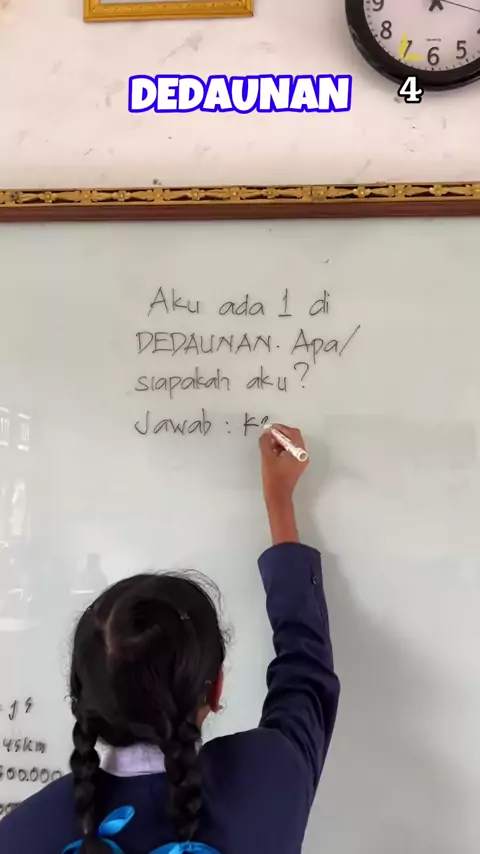 9
8
7
6
5
DEDAUNAN 4
Aku ada 1 di
DEDAUNAN. Apa/
siapakah aku?
Jawab : K
45km
500.000